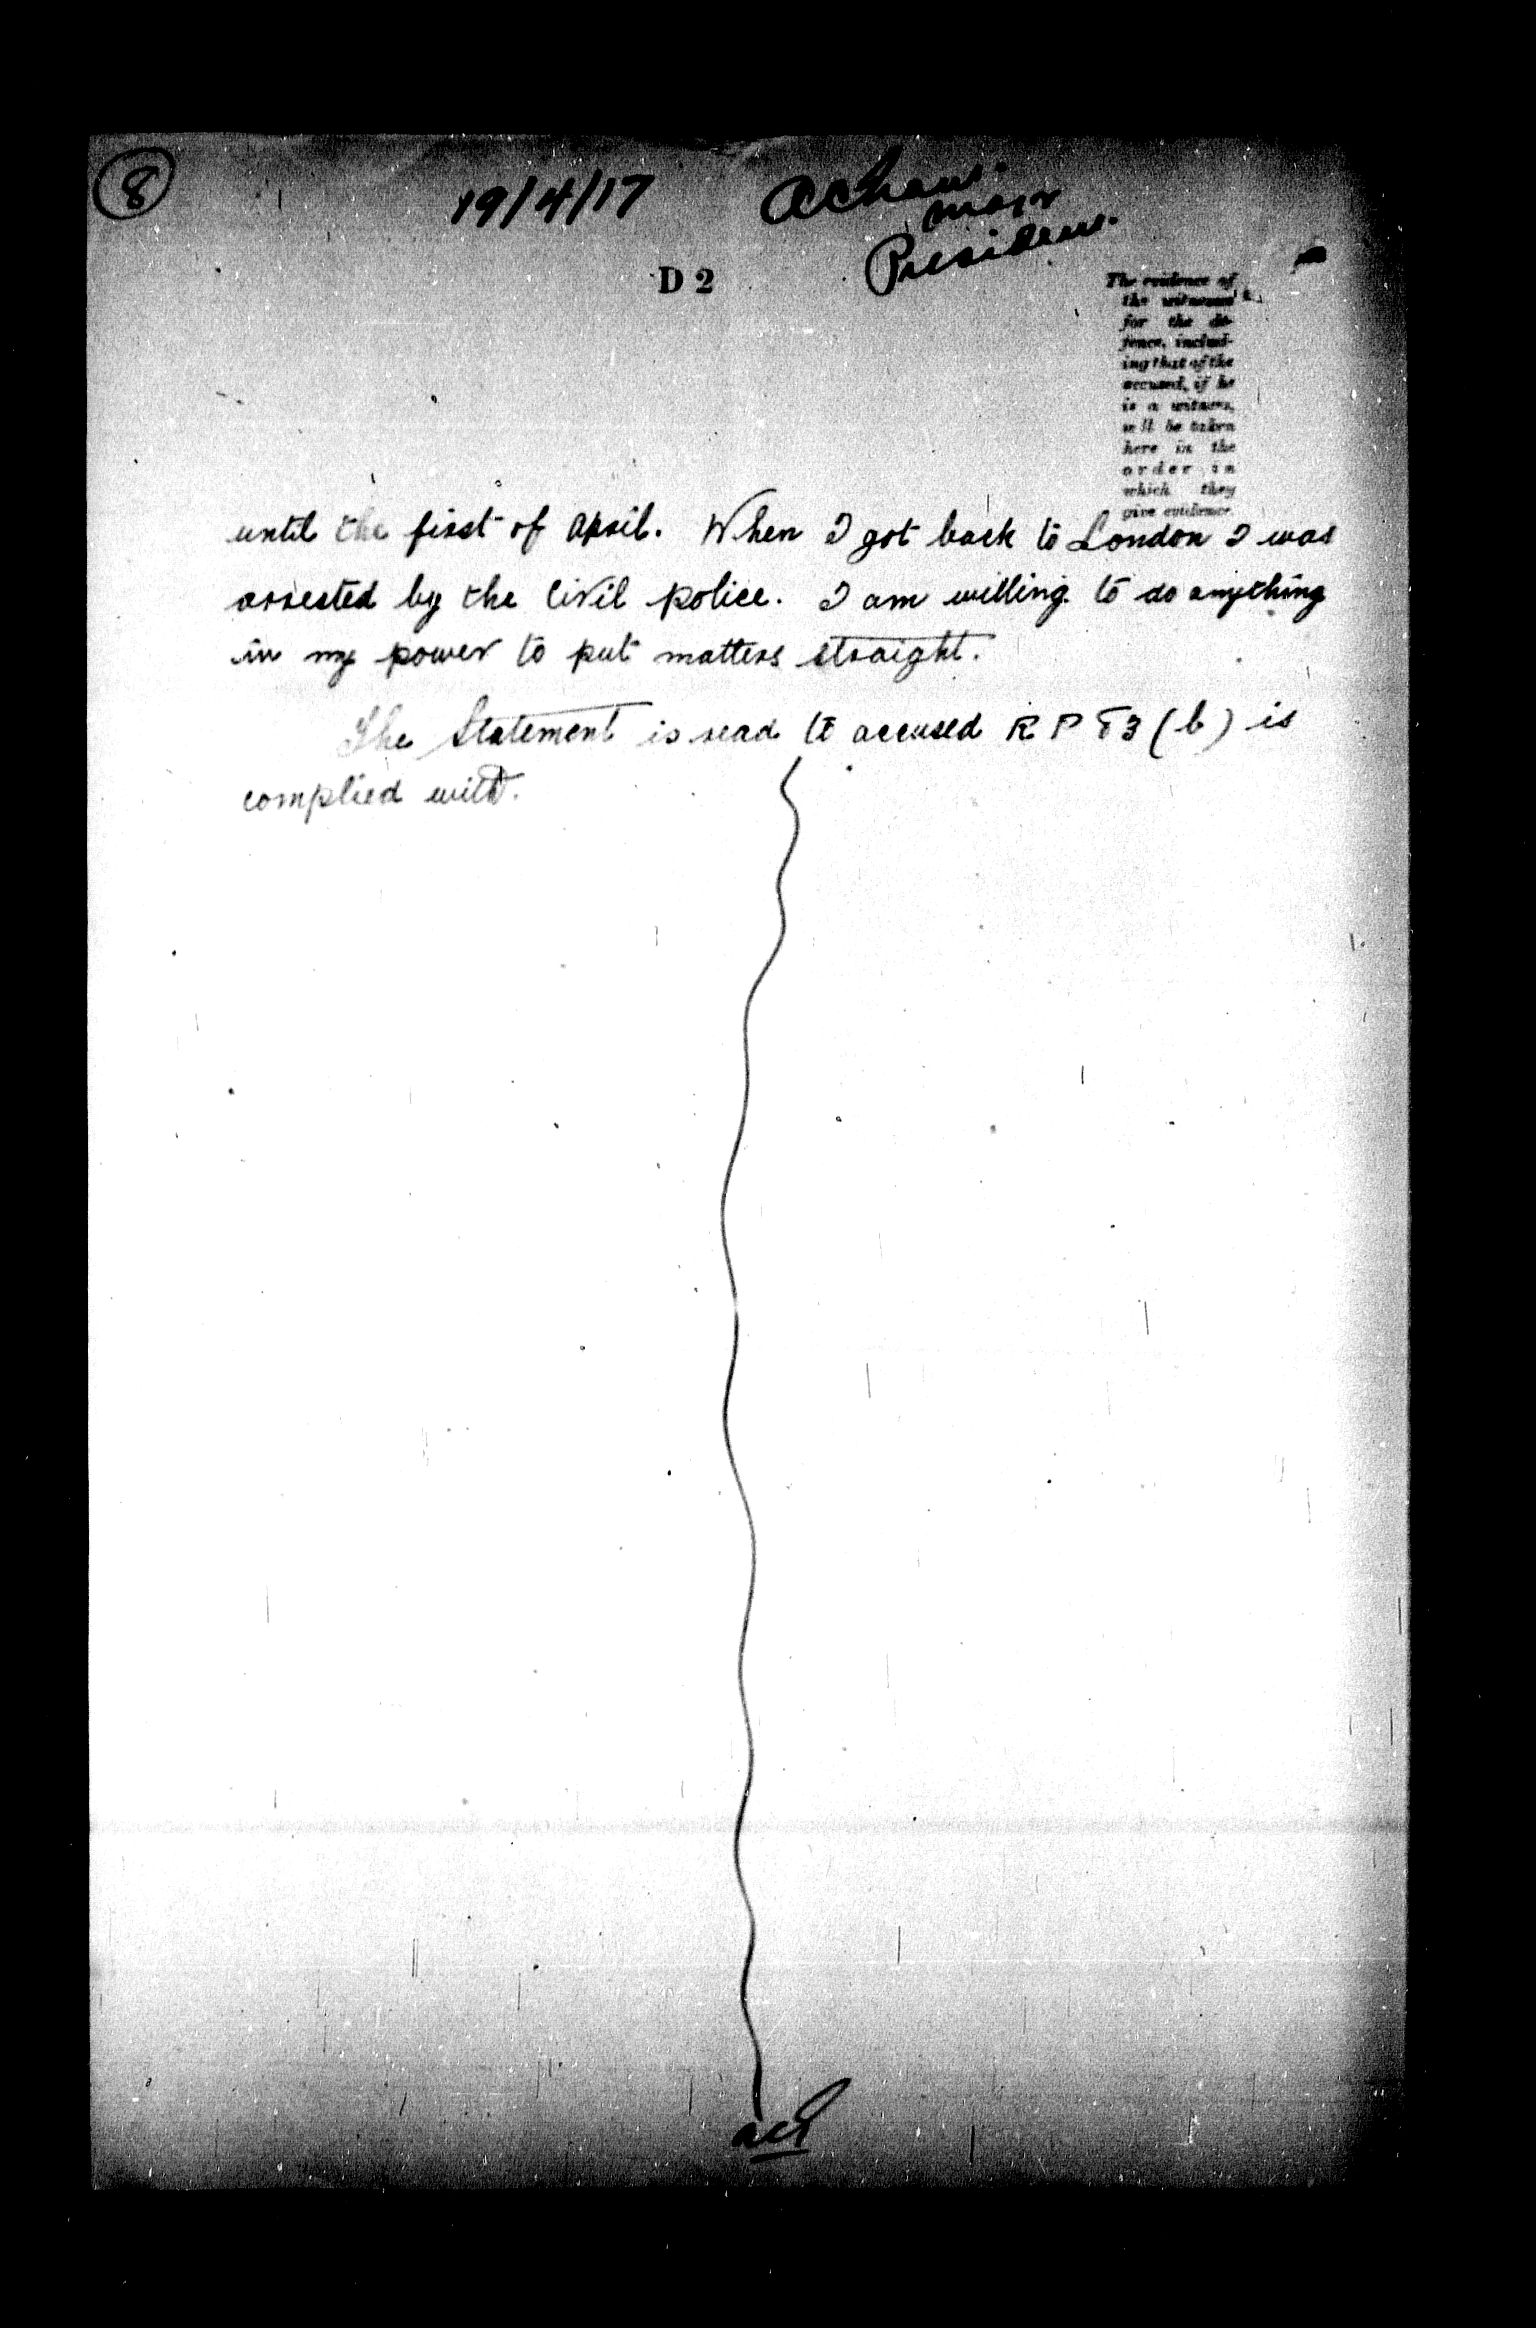 8
19/4/17
Major
President.
D 2
The evidence of
the witnesses
for the de-
fence, includ-
ing that of the
accused, if he
is a witness,
will be taken
here in the
order in
which they
give evidence.
until the first of April. When I got back to London I was
arrested by the Civil police. I am willing to do anything
in my power to put matters straight.
The Statement is read to accused R P 83 (b) is
complied with.
ach